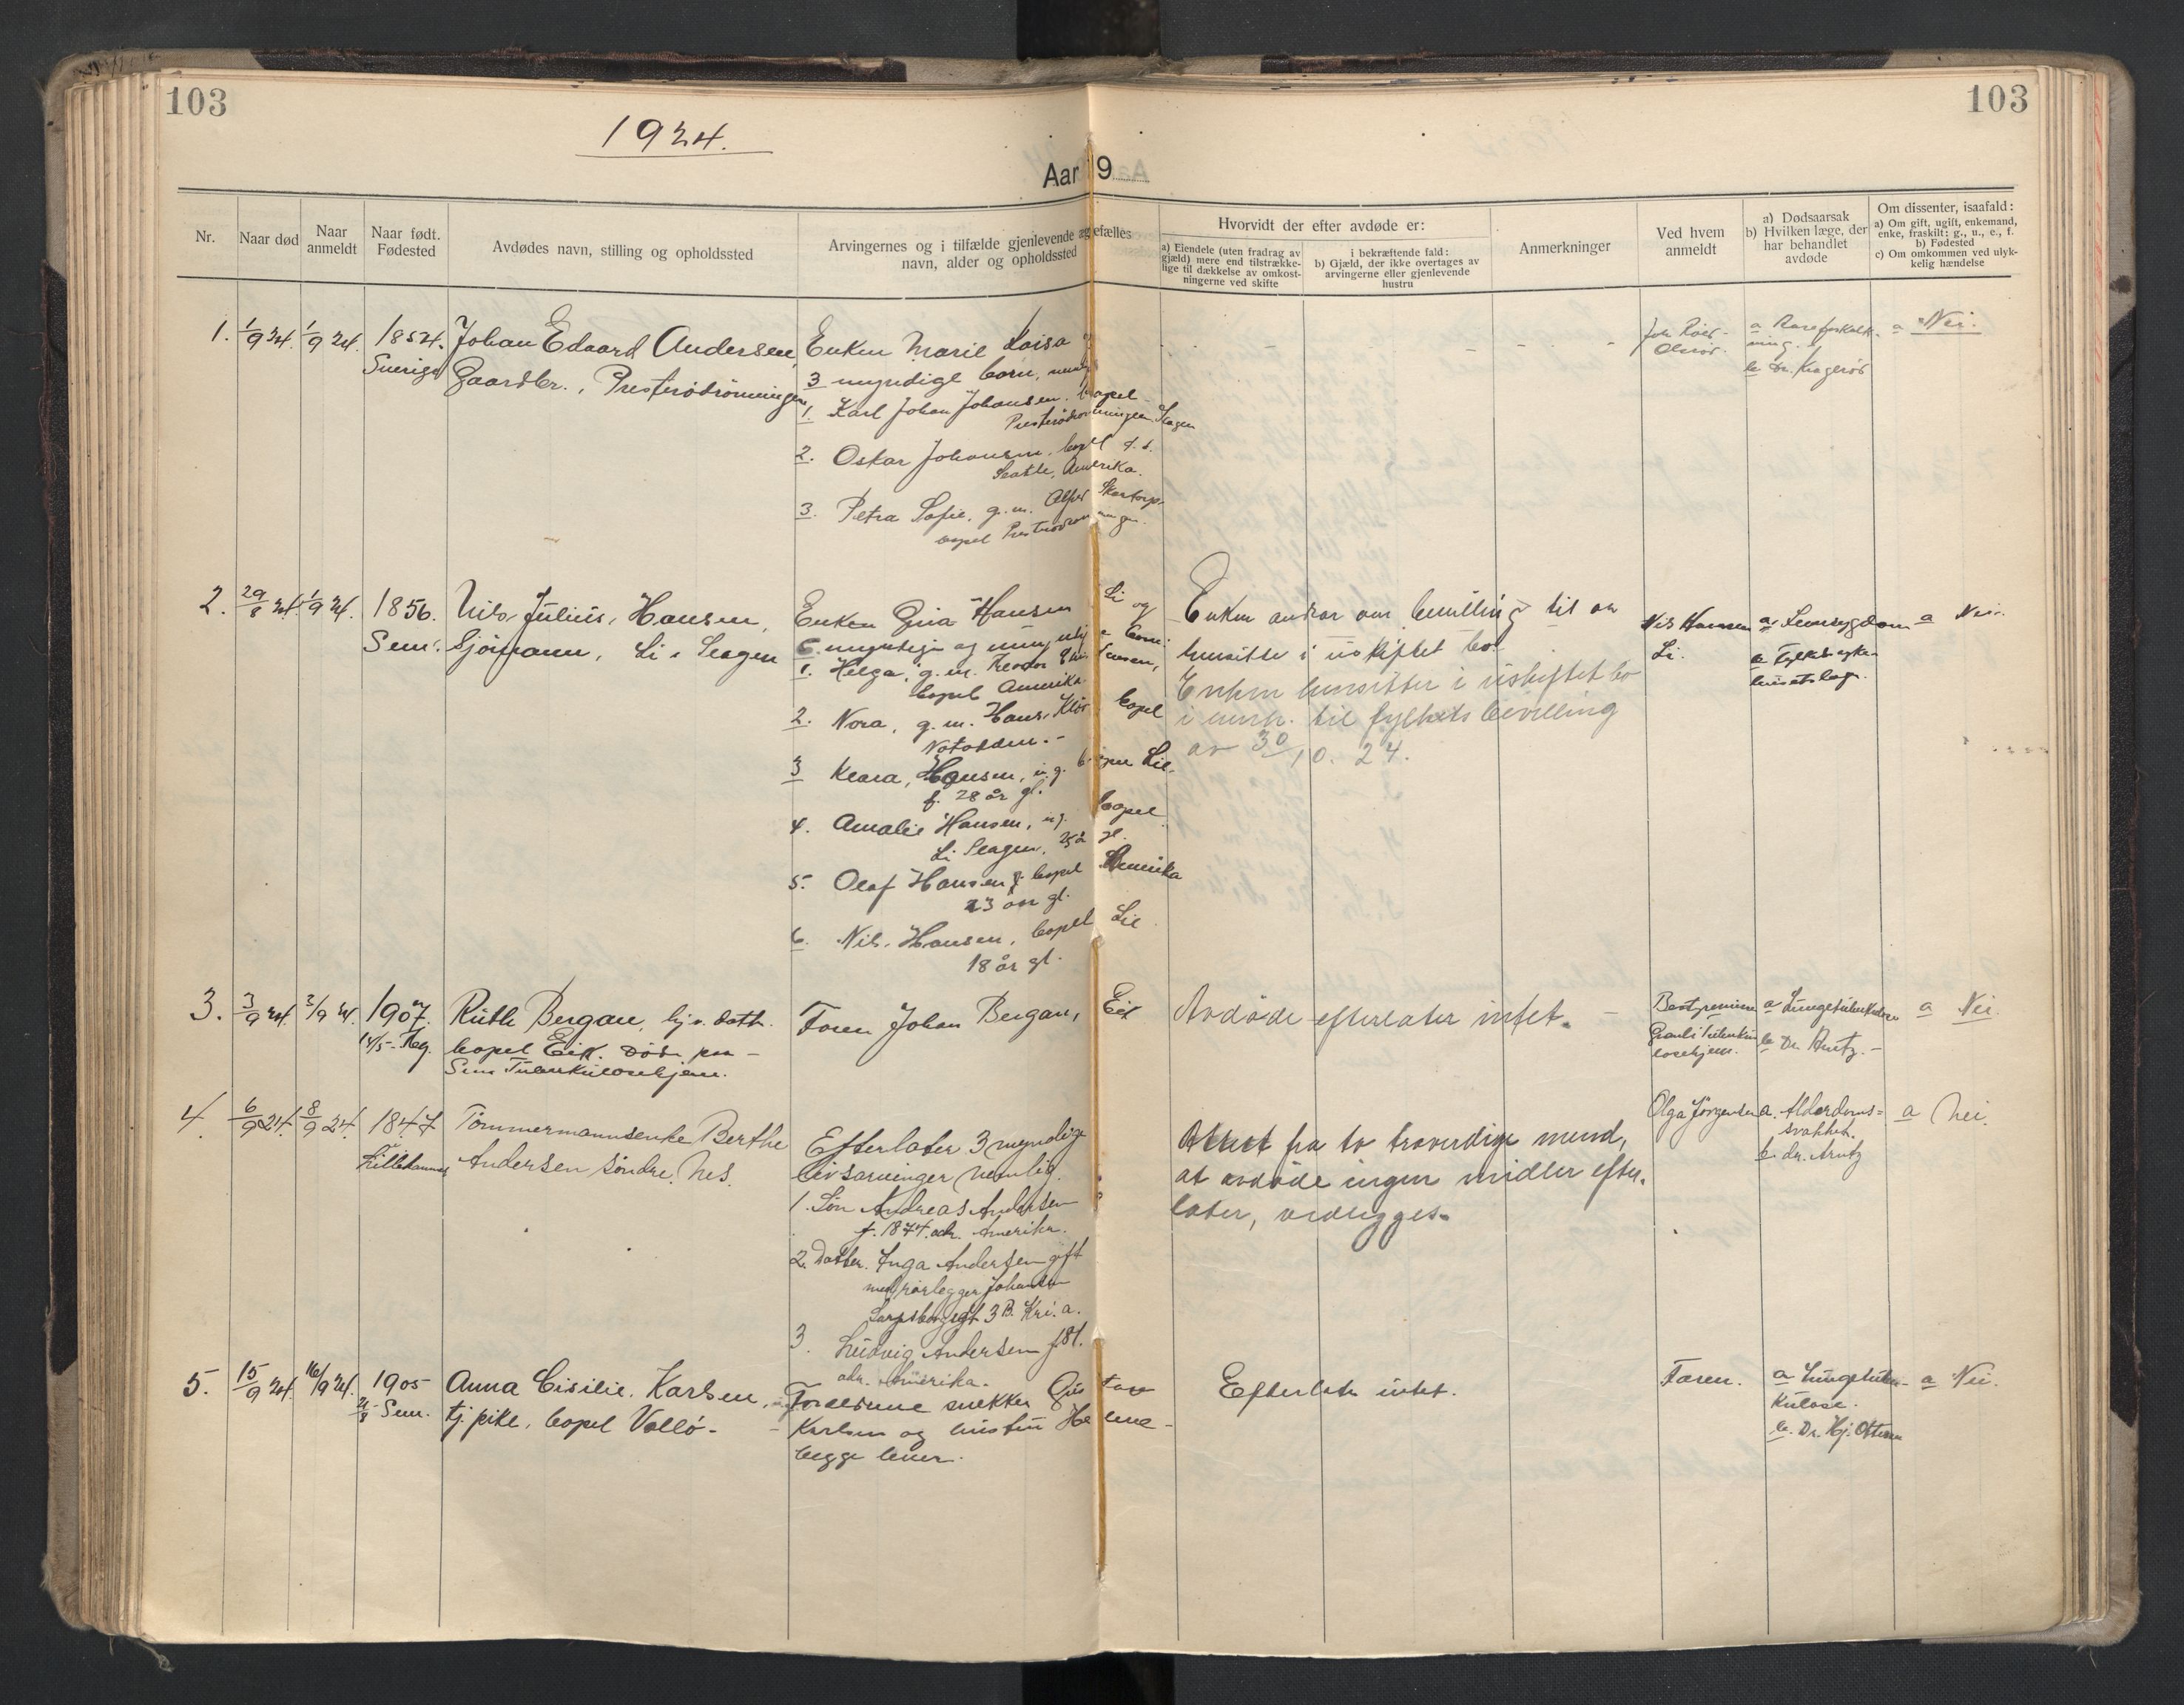 103
103
1924.
Aar 19
Nr.
Naar død
Naar anmeldt
Naar født. Fødested
Avdødes navn, stilling og opholdssted
Arvingernes og i tilfælde gjenlevende ægtefælles
navn, alder og opholdssted
Hvorvidt der efter avdøde er:
a) Eiendele (uten fradrag av
gjæld) mere end tilstrække-
lige til dækkelse av omkost-
ningerne ved skifte
i bekræftende fald:
b) Gjæld, der ikke overtages av
arvingerne eller gjenlevende
hustru
Anmerkninger
Ved hvem
anmeldt
a) Dødsaarsak
b) Hvilken læge, der
har behandlet
avdøde
Om dissenter, isaafald:
a) Om gift, ugift, enkemand,
enke, fraskilt: g., u., e., f.
b) Fødested
c) Om omkommen ved ulyk-
kelig hændelse
1. 1/9 24. 1/9 24. 1854.
Sverige
Johan Edvard Andersen,
Gaardbr., Presterødrønningen
Enken Marie Loisa og
3 myndige barn,
1. Karl Johan Johansen, bopel
Presterødrønningen Slagen
2. Oskar Johansen, bopel
Seattle, Amerika.
3. Petra Sofie, g.m.
bopel
a
b Dr.
a Nei.
2. 29/8 24. 1/9 24. 1856.
Sem.
Nils Julius Hansen,
Sjømann, Li i Slagen
Enken Hansen Li og
6 myndige og umyndige barn:
1. Helga, g.m. Teodor
bopel Amerika
2. Nora, g.m. Hans bopel
Notodden.-
3 Klara Hansen, ug.
f. 28 år gl.
4. Amalie Hansen, ug. bopel
Li Slagen, 25 år gl.
5. Olaf Hansen, bopel Amerika
23 år gl.
6. Nils Hansen, bopel Lie
18 år gl.
Enken andrar om bevilling til at
hensitte i uskiftet bo.
Enken hensitter i uskiftet bo
i henh. til fylkets bevilling
av 30/10. 24.
Nils Hansen
Li.
a.
b Fylkessyke-
husets læge.
a Nei.
3. 3/9 24. 3/9 24. 1907.
14/5
Ruth Bergan, hj.v. datt.
bopel Eik. Død paa
Sem Tuberkulosehjem.
Faren Johan Bergan, Eik
Avdøde efterlater intet.
Bestyrerinen
a Lungetuberkulose
b Dr. Arntz.-
a Nei
4. 6/9 24. 8/9 24. 1847
Lillehammer
Tømmermannsenke Berthe
Andersen søndre Nes.
Efterlater 3 myndige
livsarvinger nemlig.
1. Søn Andreas Andersen
f. 1874. adr. Amerika.
2. Datter. Inga Andersen gift
med rørlegger Johansen
Sarpsborggt 3 B. Kr.i.a.
3. Ludvig Andersen f 81.
adr. Amerika.
Attest fra to troverdige mend,
at avdøde ingen midler efter-
later, vedlegges.
Olga Jørgensen
a. Alderdoms-
svakhet.
b. dr. Arntz
a Nei.
5. 15/9 24. 16/9 24. 1905
Sem.
Anna Cisilie Karlsen,
tj. pike, bopel Vallø.
Foreldrene snekker Gustav
Karlsen og hustru Helene
begge lever.
Efterlater intet.
Faren.
a Lungetuber-
kulose.
b. Dr. Hj. Ottersen
a Nei.